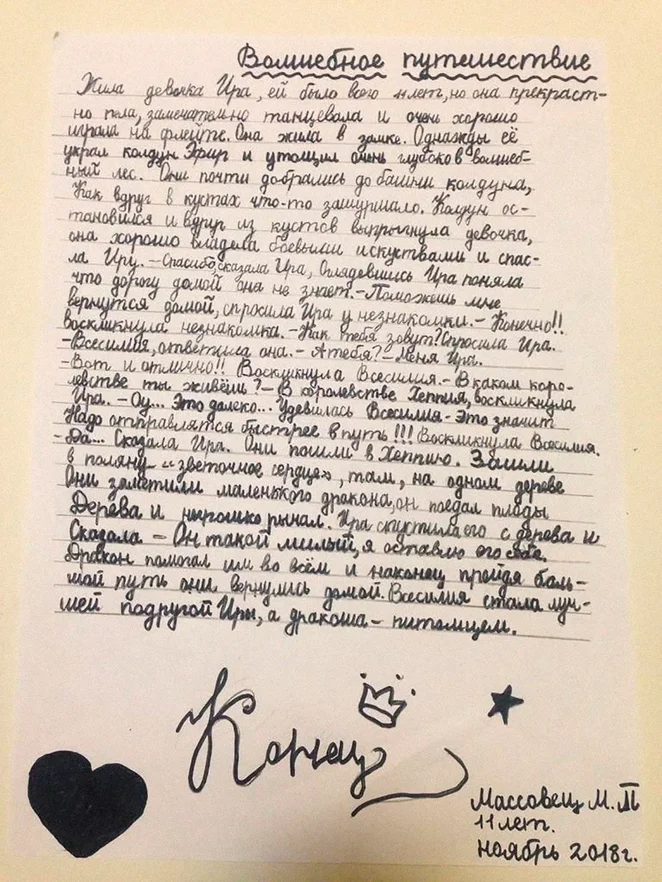 Волшебное путешествие
Жила девочка Ира, ей было всего 11 лет, но она прекраст-
но пела, замечательно танцевала и очень хорошо
играла на флейте. Она жила в замке. Однажды её
украл колдун Эфир и утощил очень глубоко в волшеб-
ный лес. Они почти добрались до башни колдуна,
Как вдруг в кустах что-то зашуршало. Колдун ос-
тановился и вдруг из кустов выпрыгнула девочка,
она хорошо владела боевыми искуствами и спас-
ла Иру. - Спасибо, сказала Ира, Оглядевшись Ира поняла
что дорогу домой она не знает. - Поможешь мне
вернутся домой, спросила Ира у незнакомки. - Конечно!!
воскликнула незнакомка. - Как тебя зовут? Спросила Ира.
- Всесилия, ответила она. - А тебя? - Меня Ира.
- Вот и отлично!! Воскликнула Всесилия. - В каком коро-
левстве ты живёш? - В королевстве Хеппия, воскликнула
Ира. - Оу... Это далеко... Удевилась Всесилия - Это значит
Надо отправлятся быстрее в путь!!! Воскликнула Всесилия.
- Да... Сказала Ира. Они пошли в Хеппию. Зашли
в поляну "цветочное сердце", там, на одном дереве
Они заметили маленького дракона, он поедал плоды
Дерева и нырошко рычал. Ира спустила его с дерева и
Сказала - Он такой милый, я оставлю его себе.
Дракон помогал им во всём и наконец пройдя боль-
шой путь они вернулись домой. Всесилия стала луч-
шей подругой Иры, а дракоша - питомцем.
Конец
Массовец М. П
11 лет.
ноябрь 2018г.